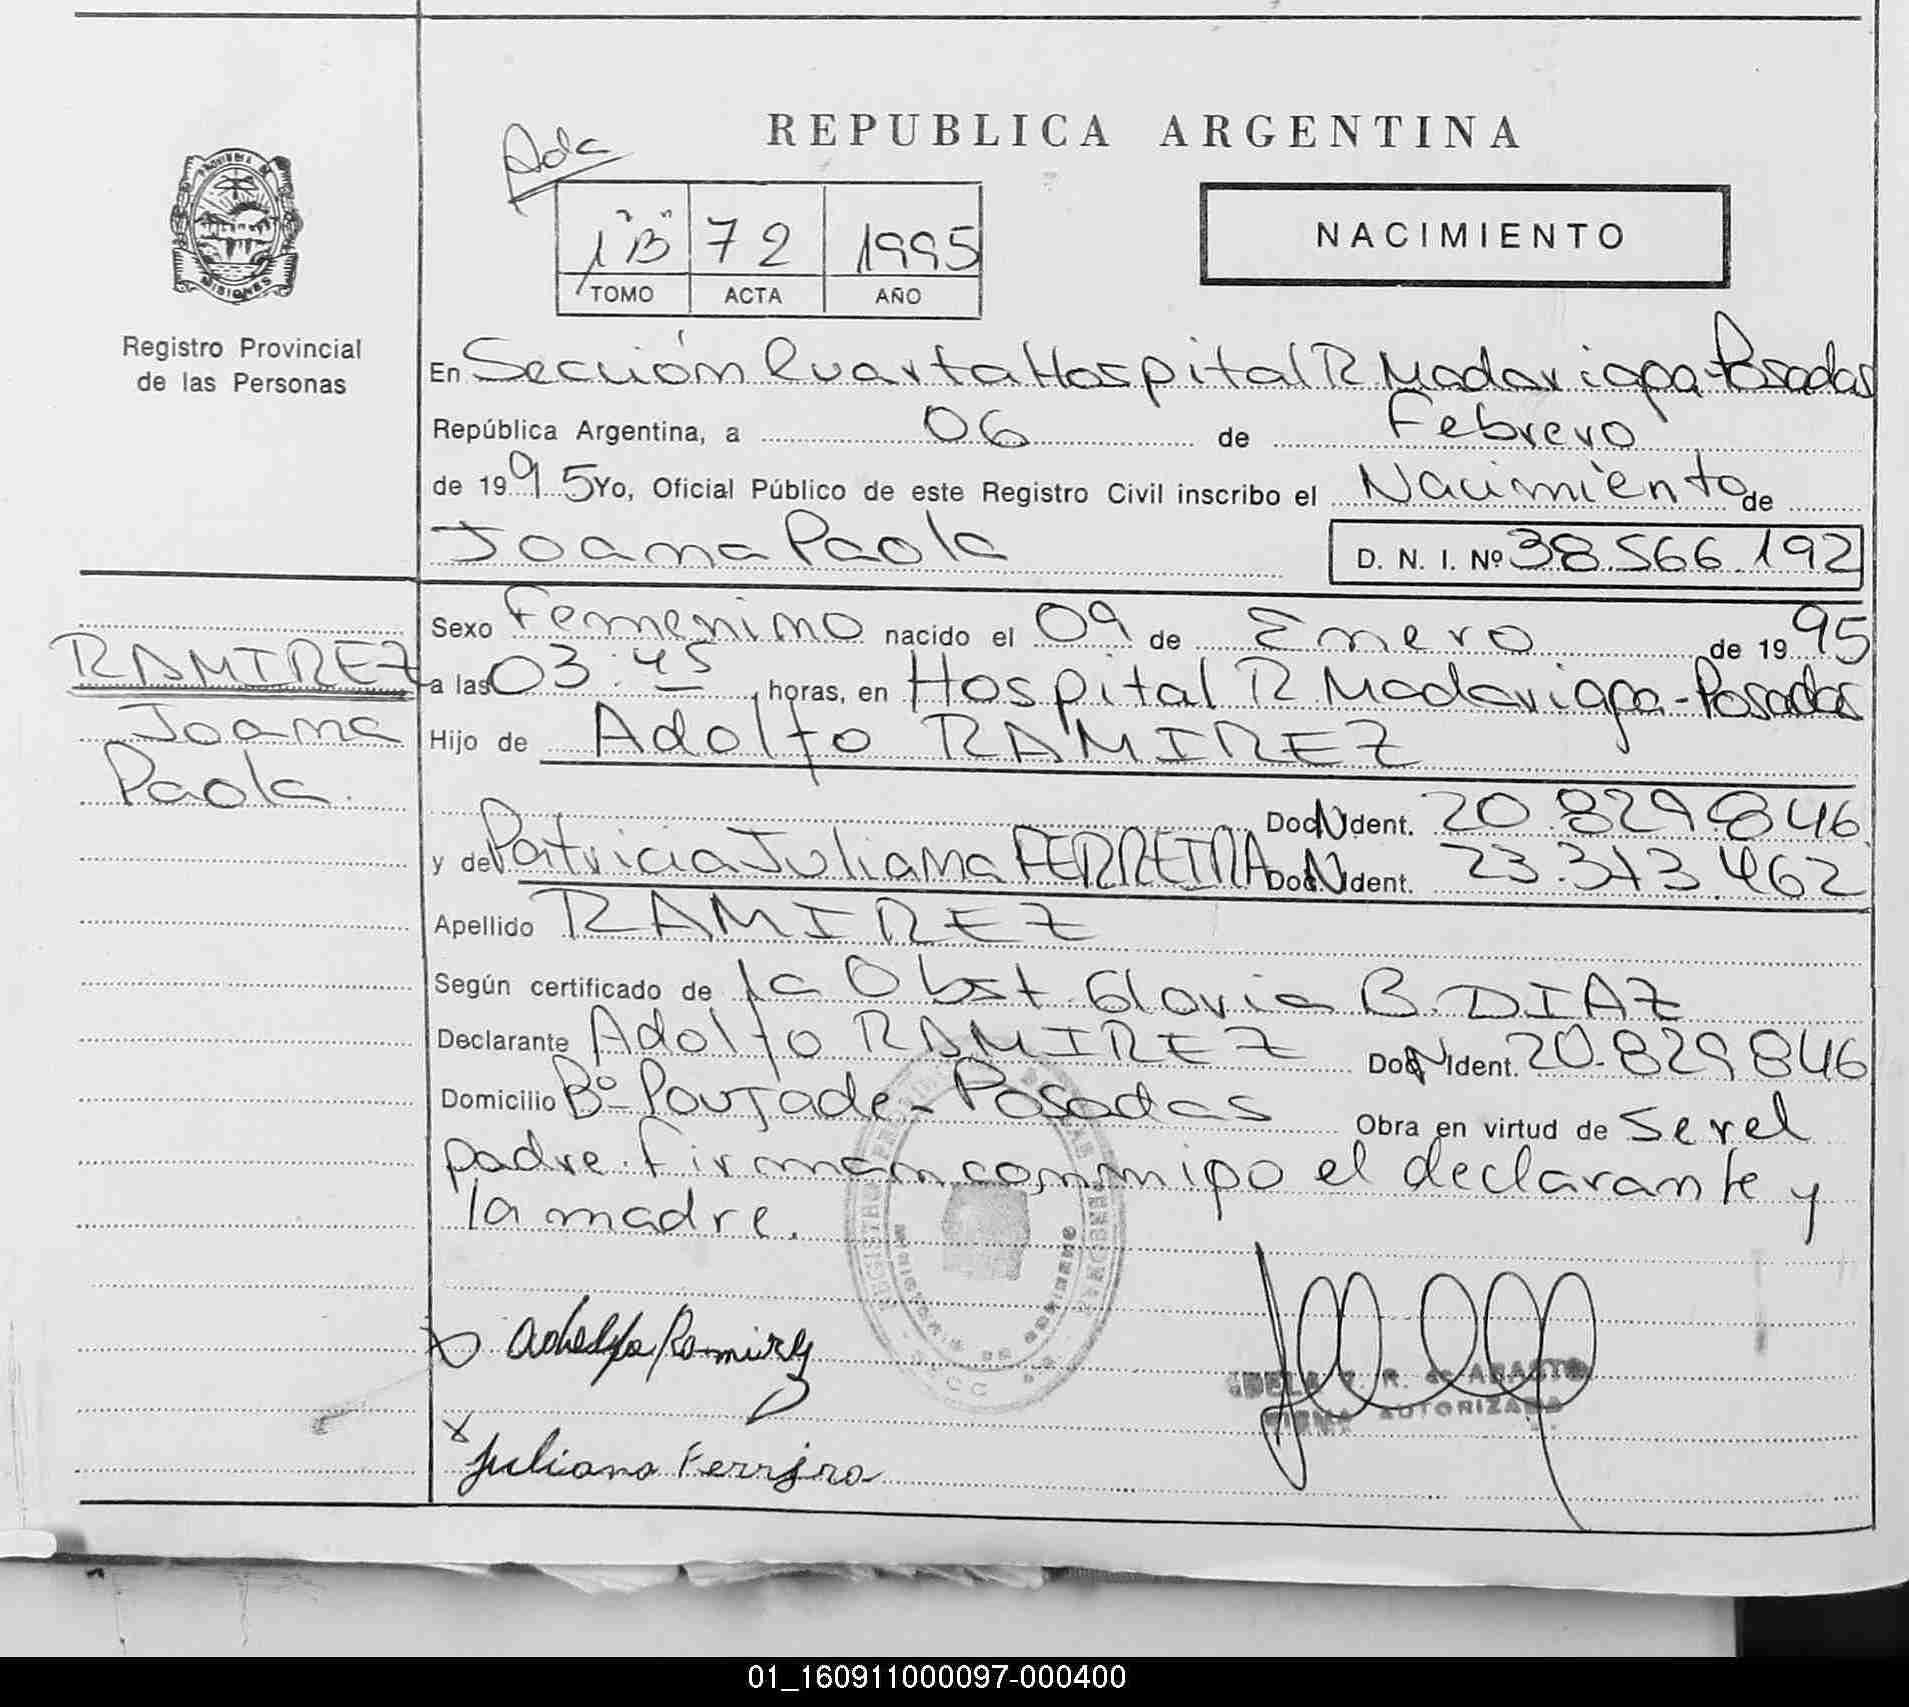 REPUBLICA ARGENTINA
1 "B" 72 1995
TOMO ACTA AÑO
NACIMIENTO
MISIONES
Registro Provincial
de las Personas
En Sección Cuarta Hospital R Madariaga Posadas
República Argentina, a 06 de Febrero
de 1995 Yo, Oficial Público de este Registro Civil inscribo el Nacimiento de
Joana Paola D. N. I. Nº 38.566.192
RAMIREZ
Joana
Paola.
Sexo Femenino nacido el 09 de Enero de 1995
a las 03:45 horas, en Hospital R Madariaga - Posadas
Hijo de Adolfo RAMIREZ
Doc N Ident. 20.829.846
y de Patricia Juliana FERREIRA Doc N Ident. 23.313.462
Apellido RAMIREZ
Según certificado de la Obst Gloria B. DIAZ
Declarante Adolfo RAMIREZ Doc N Ident. 20.829.846
Domicilio Bº Poujade - Posadas Obra en virtud de ser el
padre. Firman conmigo el declarante y
la madre.
Ramirez
Juliana Ferreira
R. de ABASTO
FIRMA AUTORIZADA
01_160911000097-000400